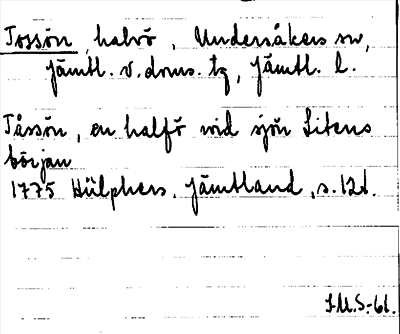 Tossön, halvö, Undersåkers sn,
Jämtl. v. doms. tg, Jämtl. l.
Tåssön, en halfö wid sjön Litens
början
1775 Hülphers. Jämtland, s. 121.
J.M.S.-61.